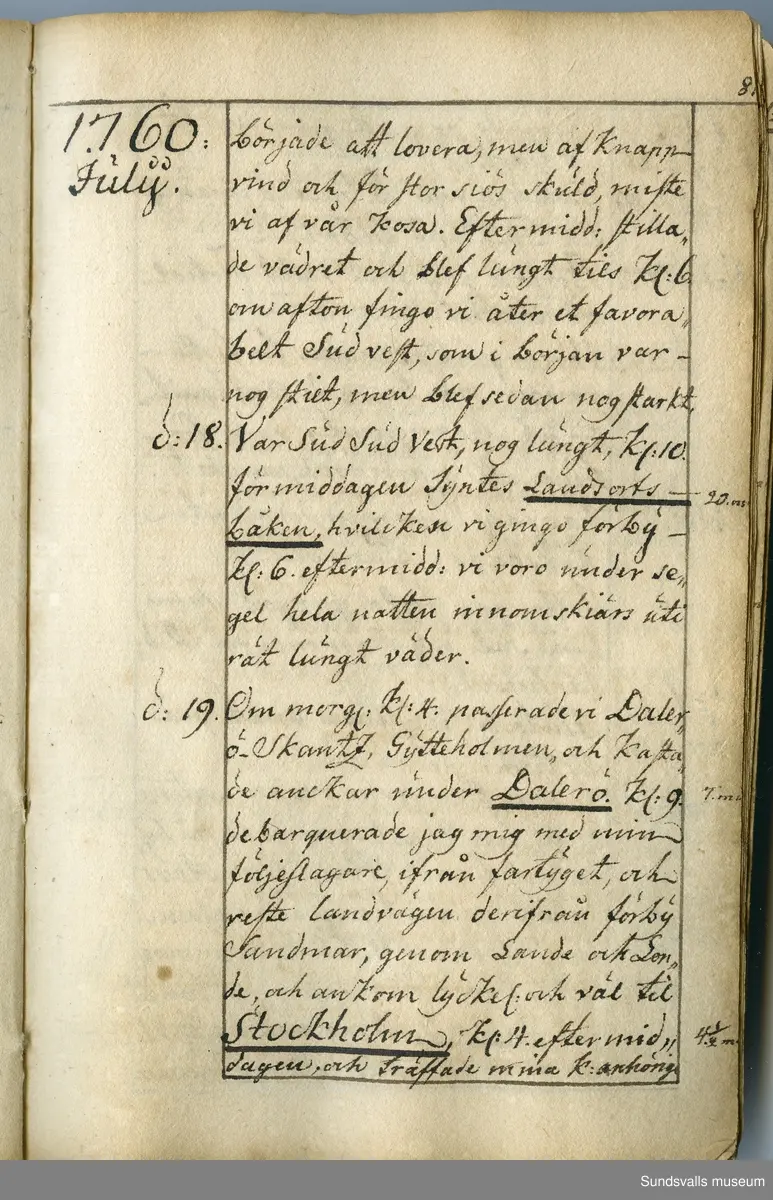 81
1760:
Julÿ.
började att lovera, men af Knapp
vind och för stor siös skuld, miste
vi af vår Kosa. Eftermidd: stilla„
de vädret och blef lungt tils Kl: 6.
om afton fingo vi åter et favora„
belt Süd vest, som i början var –
nog stilt, men blef sedan nog starkt.
d: 18. Var Süd Süd Vest, nog lungt, Kl: 10.
förmiddagen Syntes Landsorts – 20. m
båken, hvilcken vi gingo förbÿ –
Kl: 6. eftermidd: vi voro under se„
gel hela natten innomskiärs uti
rät lungt väder.
d: 19. Om morgl: Kl: 4. passerade vi Daler„
ö-Skantz, Gÿtteholmen, och kasta„
de anckar under Dalerö. Kl: 9. 7. m
debarquerade jag mig med min
följeslagare, ifrån fartÿget, och
reste landvägen derifrån förbÿ
Sandmar, genom Lande och Len„
de, och ankom lÿckel: och väl til
Stockholm, Kl: 4. eftermid„ 4½ m
dagen, och träffade mina K: anhörig
Sundsvalls museum